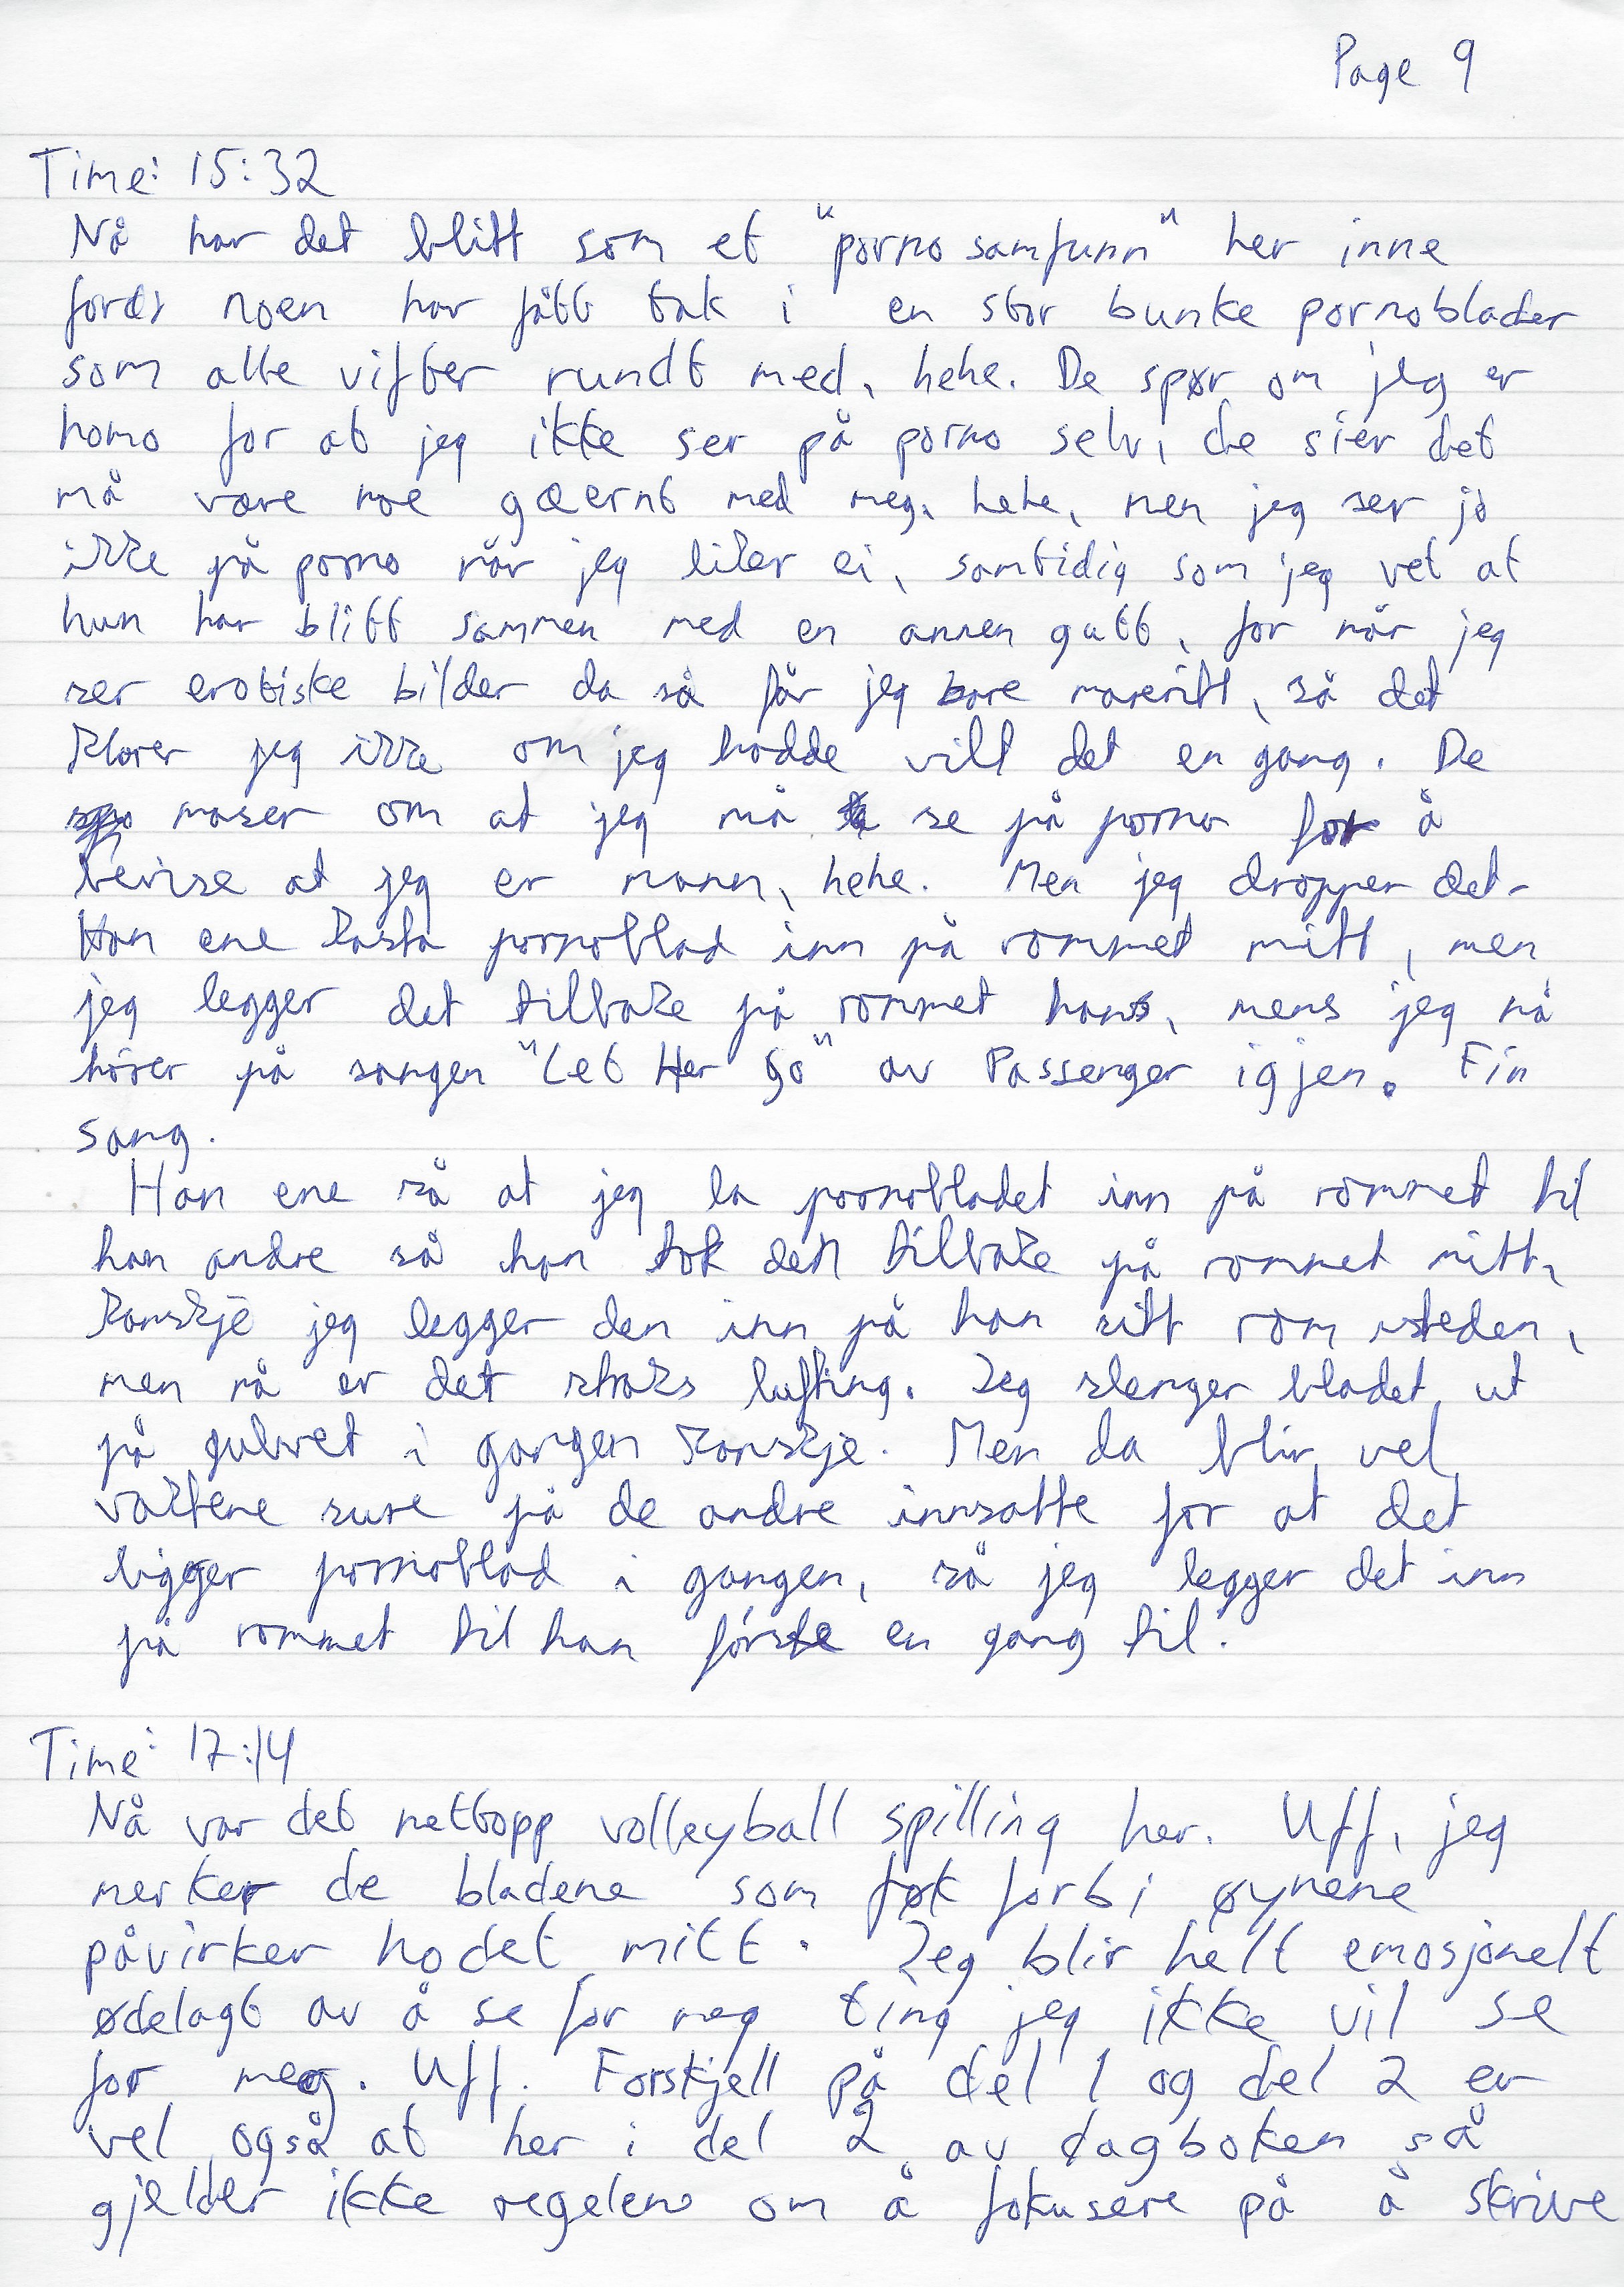 Page 9
Time: 15:32
Nå har det blitt som et "porno samfunn" her inne
fordi noen har fått tak i en stor bunke pornoblader
som alle vifter rundt med, hehe. De spør om jeg er
homo for at jeg ikke ser på porno selv, de sier det
må være noe gæernt med meg, hehe, men jeg ser jo
ikke på porno når jeg liker ei, samtidig som jeg vet at
hun har blitt sammen med en annen gutt, for når jeg
ser erotiske bilder da så får jeg bare mareritt, så det
klarer jeg ikke om jeg hadde vilt det en gang. De
maser om at jeg må se på porno for å
bevise at jeg er mann, hehe. Men jeg dropper det.
Han ene kasta pornoblad inn på rommet mitt, men
jeg legger det tilbake på rommet hans, mens jeg nå
hører på sangen "Let Her Go" av Passenger igjen. Fin
sang.
Han ene så at jeg la pornobladet inn på rommet til
han andre så han tok den tilbake på rommet mitt,
kanskje jeg legger den inn på han sitt rom isteden,
men nå er det straks lufting. Jeg slenger bladet ut
på gulvet i gangen kanskje. Men da blir vel
vaktene sure på de andre innsatte for at det
ligger pornoblad i gangen, så jeg legger det inn
på rommet til han første en gang til.
Time: 17:14
Nå var det nettopp volleyball spilling her. Uff, jeg
merker de bladene som føk forbi øynene
påvirker hodet mitt. Jeg blir helt emosjonelt
ødelagt av å se for meg ting jeg ikke vil se
for meg. Uff. Forskjell på del 1 og del 2 er
vel også at her i del 2 av dagboken så
gjelder ikke regelene om å fokusere på å skrive